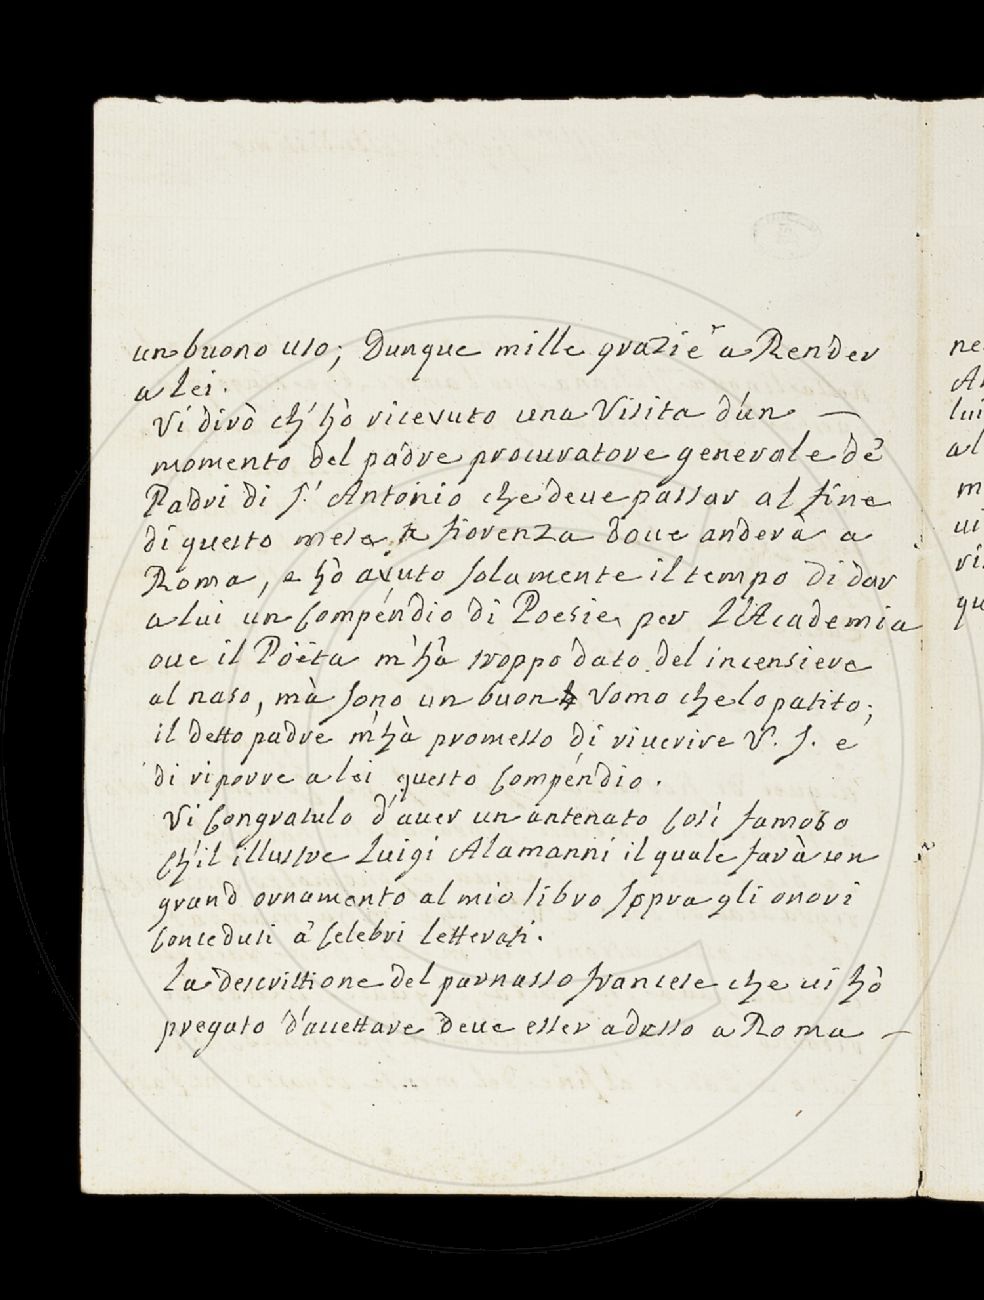 un buono uso; Dunque mille grazie a Render
a Lei.
Vi dirò ch'hò ricevuto una Visita d'un —
momento del padre procuratore generale de'
Padri di S.t Antonio che deve passar al fine
di questo mese a fiorenza doue anderà a
Roma, e hò avuto solamente il tempo di dar
a lui un Compéndio di Poesie, per L'Academia
oue il Poëta m'hà troppo dato del incensiere
al naso, mà sono un buon Vomo che lo patito;
il detto padre m'hà promesso di riuerire V. S. e
di riporre a lei questo Compéndio.
Vi Congratulo d'auer un antenato Così famoso
ch'il illustre Luigi Alamanni il quale farà un
grand ornamento al mio libro Sopra gli onori
Conceduti a' Celebri letterati.
La descrittione del parnasso francese che ui hò
pregato d'accettare deue esser adesso a Roma —
ne
lui
al
m
ui
qu